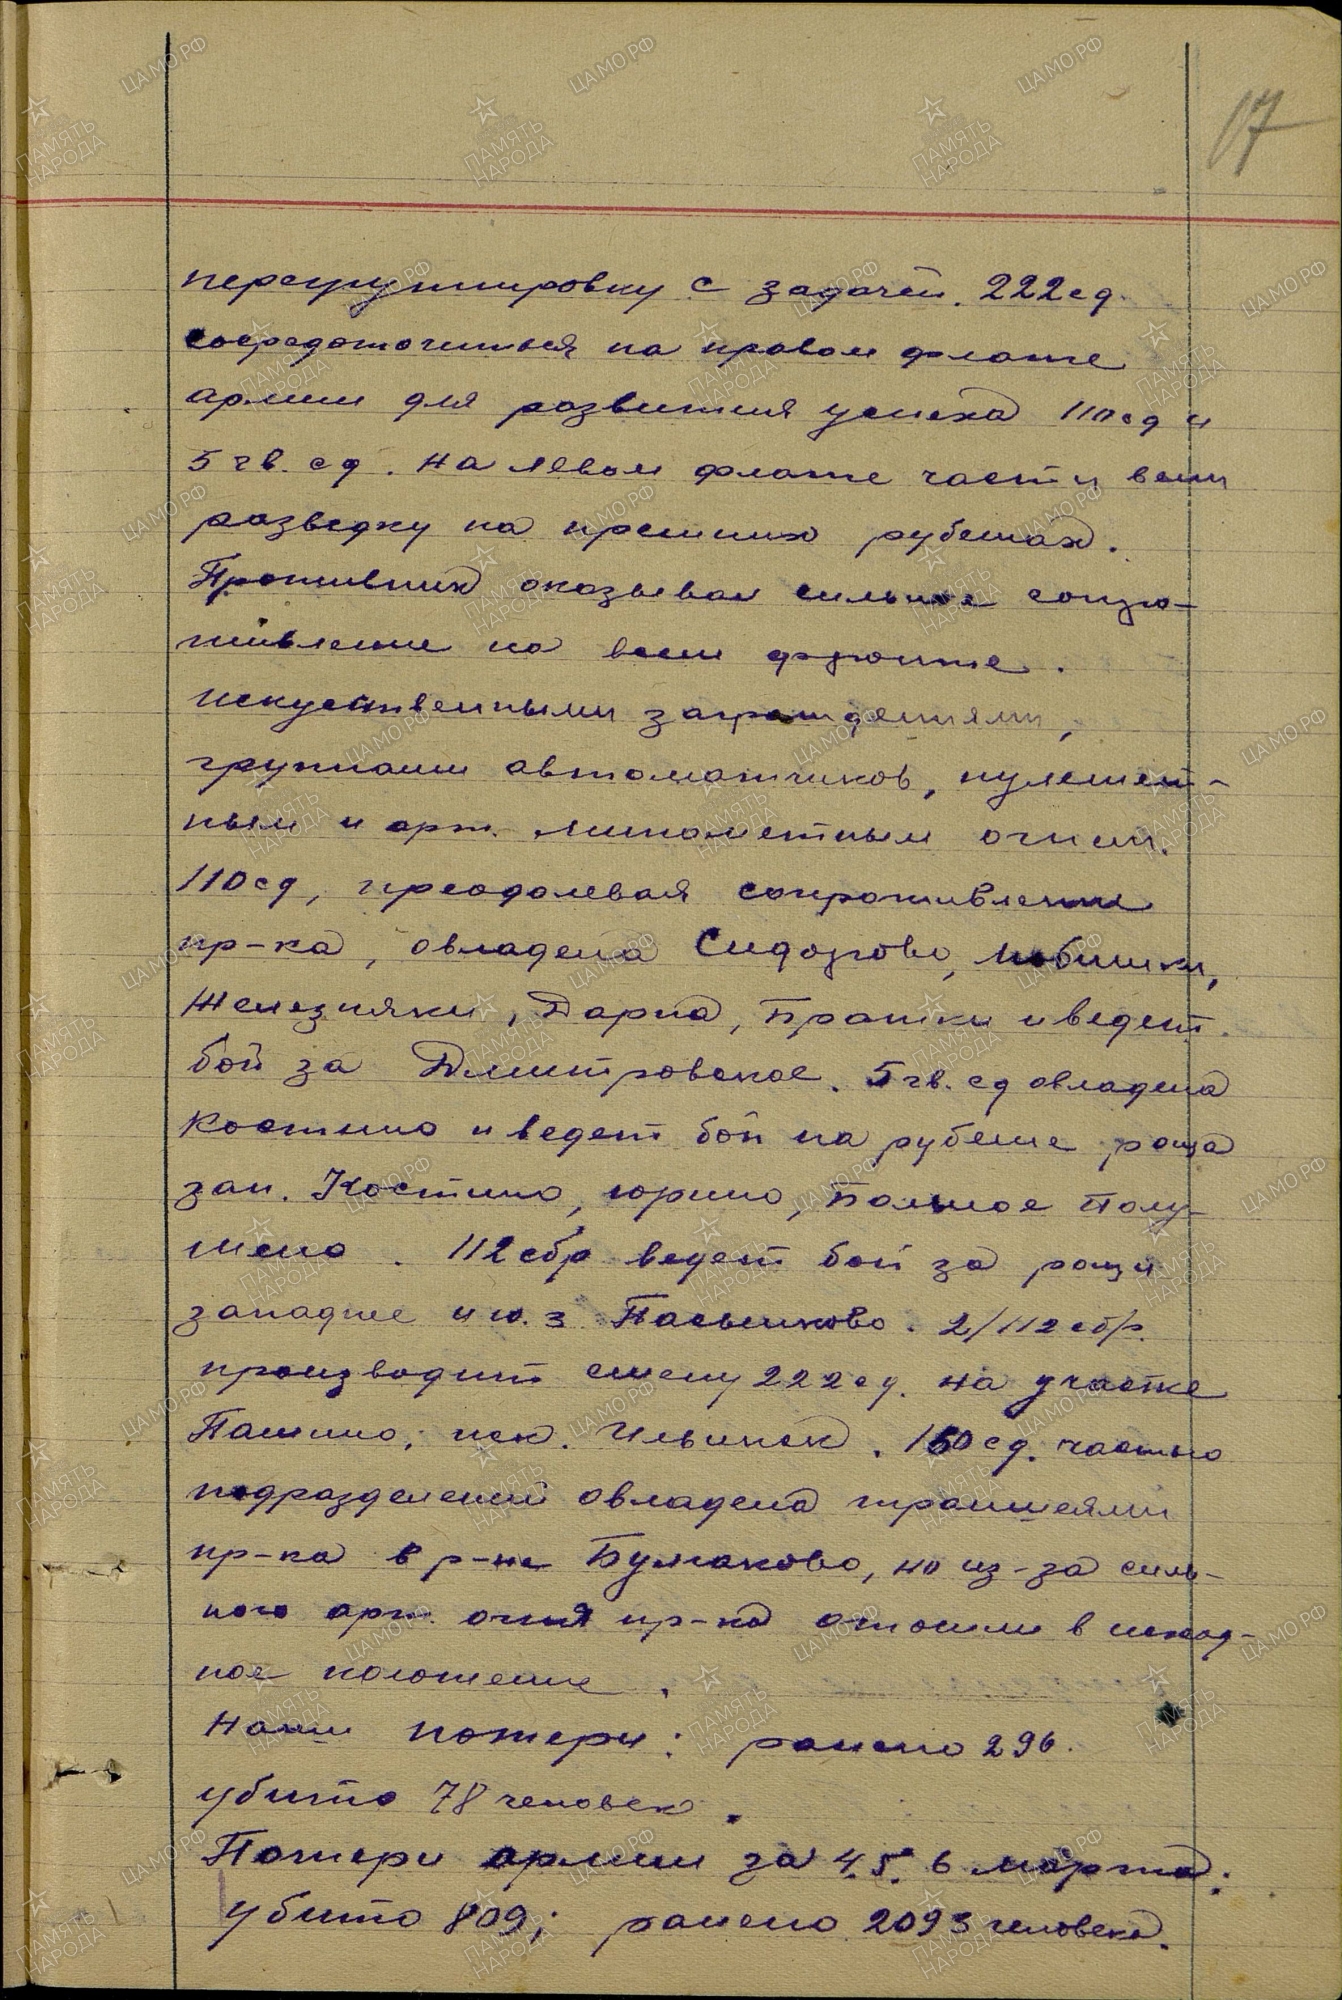 17
перегруппировку с задачей. 222 сд
сосредоточиться на правом фланге
армии для развития успеха 110 сд и
5 гв. сд. На левом фланге части вели
разведку на прежних рубежах.
Противник оказывал сильное сопро-
тивление на всем фронте.
Искуственными заграждениями,
группами автоматчиков, пулемет-
ным и арт. минометным огнем.
110 сд, преодолевая сопротивление
пр-ка, овладела Сидорово,
Железняки, Дарна, Братки и ведет
бой за Дмитровское. 5 гв. сд овладела
Костино и ведет бой на рубеже роща
зап. Костино, Юрино, Большое Полу-
шено. 112 сбр ведет бой за рощи
западнее и ю.з Васильково. 2/112 сбр.
производит смену 222 сд. на участке
Пашино, иск. Ильинск. 160 сд. частью
подразделений овладела траншеями
пр-ка в р-не Булгаково, но из-за силь-
ного арт. огня пр-ка отошли в исход-
ное положение.
Наши потери: ранено 296.
убито 78 человек.
Потери армии за 4. 5. 6 марта:
убито 809; ранено 2093 человека.
ПАМЯТЬ
НАРОДА
ЦАМО.РФ